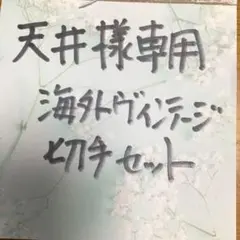 天井様専用
海外ヴィンテージ
切手セット